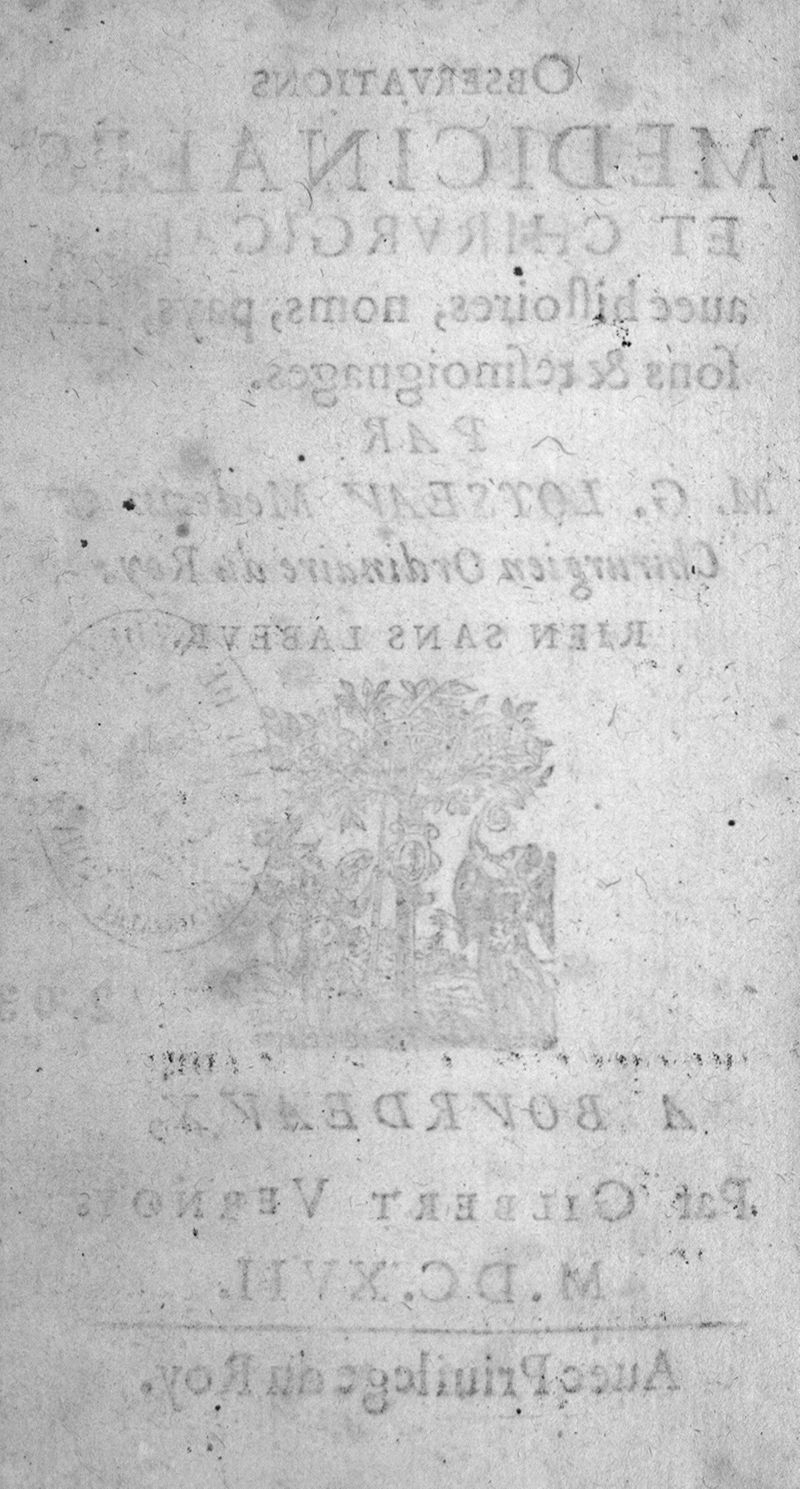 OBSERVATIONS
MEDICINALES
ET CHIRVRGICALES
auec hiſtoires, noms, pays, ſai-
ſons & teſmoignages.
PAR
M. G. LOYSEAV Medecin &
Chirurgien Ordinaire du Roy.
RIEN SANS LABEVR.
A BOVRDEAVX,
Par GILBERT VERNOY
M. DC. XVII.
Auec Priuilege du Roy.